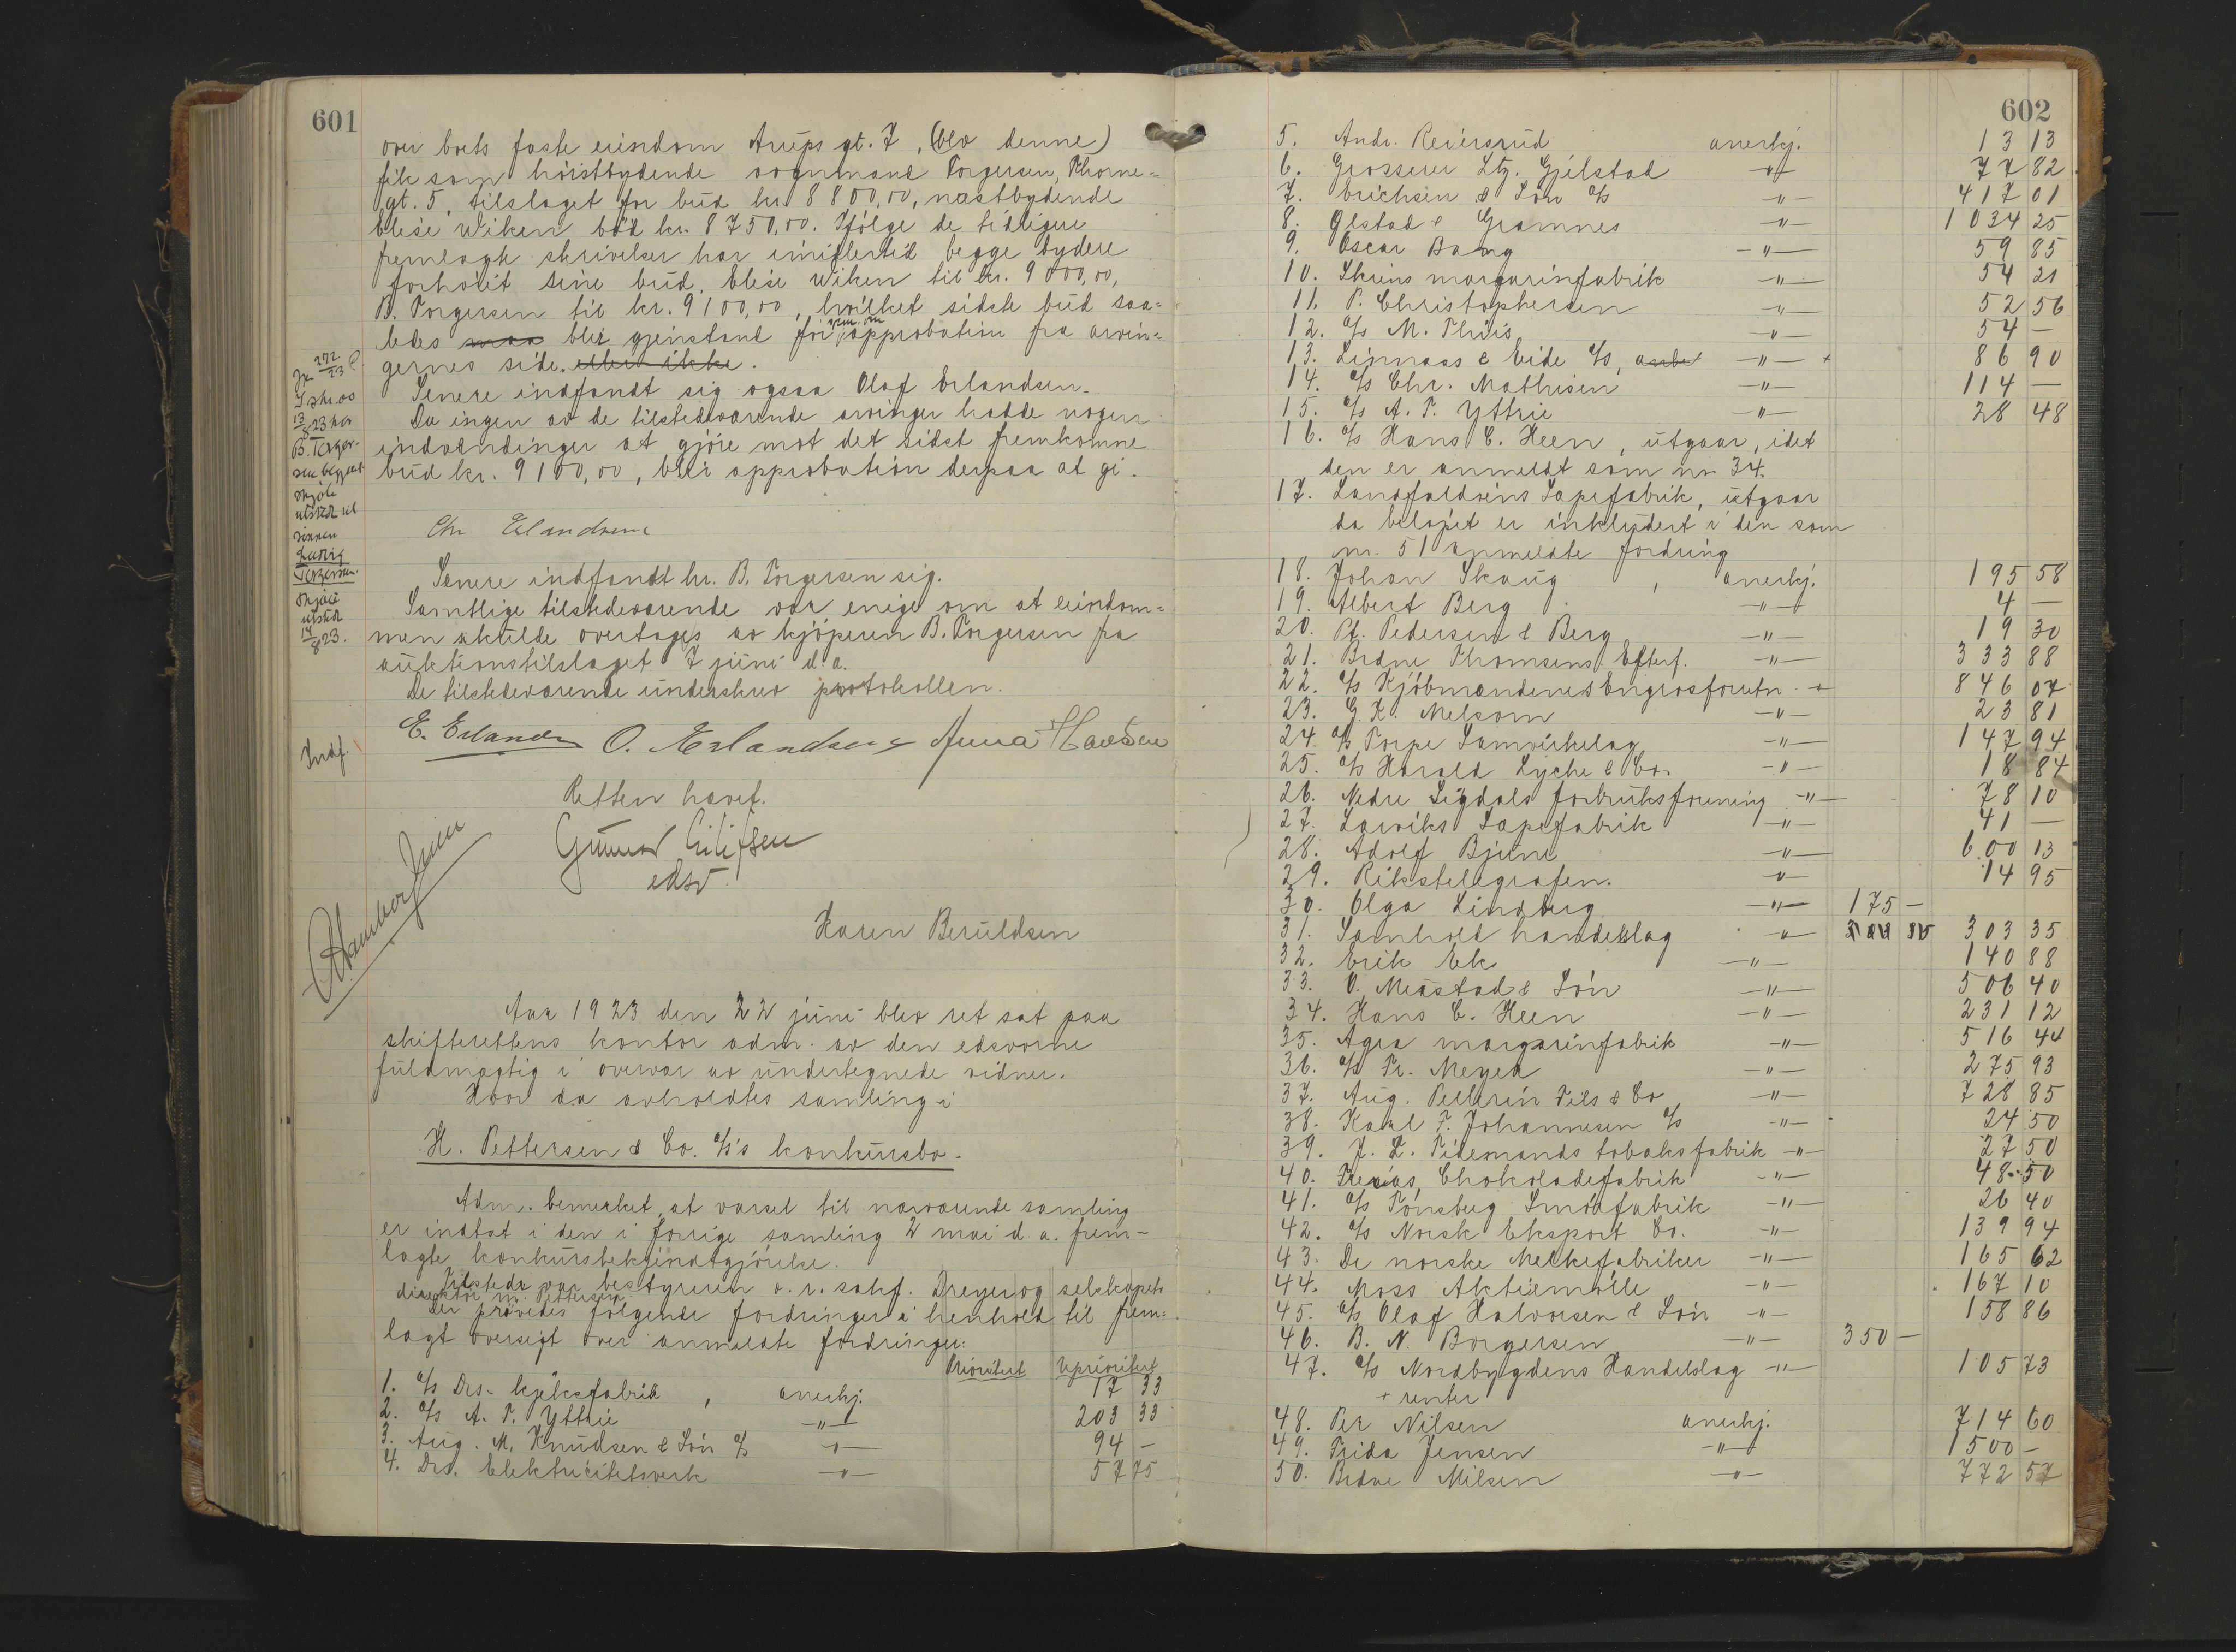 601
over boets faste eiendom Arups gt. 7, (blev denne)
fik som høistbydende vognmand Torgersen, Thorne=
gt. 5, tilslaget for bud kr. 8800,00, næstbydende
Elise Wiken bød kr. 8750,00. Ifølge de tidligere
fremlagte skrivelser har imidlertid begge bydere
forhøiet sine bud, Elise Wiken til kr. 9000,00,
B. Torgersen til kr. 9100,00, hvilket sidste bud saa=
ledes blir gjenstand for approbation fra arvin=
gernes side. eller ikke.
Senere indfandt sig ogsaa Olaf Erlandsen.
Da ingen av de tilstedeværende arvinger hadde nogen
indvendinger at gjøre mot det sidst fremkomne
bud kr. 9100,00, blir approbation derpaa at gi.
272/23
13/8 23 har
B. Torger-
sen begjært
skjøte
utstedt til
Ludvig
Torgersen.
Skjøte
utstedt
14/8 23.
Chr Erlandsen
Senere indfandt hr. B. Torgersen sig.
Samtlige tilstedeværende var enige om at eiendom=
men skulde overtages av kjøperen B. Torgersen fra
auktionstilslaget 7 juni d.a.
De tilstedeværende underskrev protokollen.
E. Erlandsen O. Erlandsen Anna Hansen
Indf.
Retten hævet.
Gunnar Eilifsen
edsv.
Karen Beruldsen
Aar 1923 den 22 juni blev ret sat paa
skifterettens kontor adm. av den edsvorne
fuldmægtig i overvær av undertegnede vidner.
Hvor da avholdtes samling i
H. Pettersen & Co. A/S's konkursbo.
Adm. bemerket, at varsel til nærværende samling
er indtat i den i forrige samling 2 mai d.a. frem-
lagte konkursbekjendtgjørelse.
Tilstede var bestyreren o.r. sakf. Dreyer og selskapets
direktør hr. Pettersen.
Der prøvedes følgende fordringer i henhold til frem=
lagt oversigt over anmeldte fordringer:
Prioritert Uprioritert
1. A/S Drs. kjeksfabrik, anerkj. 17 33
2. A/S A. T. Yttrie -"- 203 33
3. Aug. M. Knudsen & Søn A/S -"- 94 -
4. Drs. Elektricitetsverk -"- 57 75
602
5. Andr. Reiersrud anerkj. 13 13
6. Grosserer Ltz. Gjelstad -"- 77 82
7. Erichsen & Søn A/S -"- 417 01
8. Ølstad & Gramnes -"- 1034 25
9. Oscar Bang -"- 59 85
10. Skiens margarinfabrik -"- 54 21
11. P. Christophersen -"- 52 56
12. A/S M. Thiis -"- 54 -
13. Lijnaas & Eide A/S, -"- 86 90
14. A/S Chr. Mathisen -"- 114 -
15. A/S A. T. Yttrie -"- 28 48
16. A/S Hans C. Heen, utgaar, idet
den er anmeldt som nr. 34.
17. Landfaldøiens Sæpefabrik, utgaar
da beløpet er inkludert i den som
nr. 51 anmeldte fordring
18. Johan Skaug, anerkj. 195 58
19. Albert Berg -"- 4 -
20. Pt. Pedersen & Berg -"- 19 30
21. Brdne Thomsens Efterf. -"- 333 88
22. A/S Kjøbmændenes Engrosforretn. -"- 846 07
23. G. K. Melsom -"- 23 81
24. A/S Torpe Samvirkelag -"- 147 94
25. A/S Harald Lyche & Co. -"- 18 84
26. Nedre Sigdals forbruksforening -"- 78 10
27. Larviks Sæpefabrik -"- 41 -
28. Adolf Bjune -"- 600 13
29. Rikstelegrafen. -"- 14 95
30. Olga Lindberg -"- 175 -
31. Samhold handelslag -"- 303 35
32. Erik Ek -"- 140 88
33. O. Mustad & Søn -"- 506 40
34. Hans C. Heen -"- 231 12
35. Agra margarinfabrik -"- 516 44
36. A/S Fr. Meyer -"- 275 93
37. Aug. Pellerin Fils & Co -"- 728 85
38. Karl F. Johannesen A/S -"- 24 50
39. J. L. Tidemands tobaksfabrik -"- 27 50
40. Freias Chokoladefabrik -"- 48 50
41. A/S Tønsberg Smørfabrik -"- 26 40
42. A/S Norsk Eksport Co. -"- 139 94
43. De norske Melkefabriker -"- 165 62
44. Moss Aktiemølle -"- 167 10
45. A/S Olaf Halvorsen & Søn -"- 158 86
46. B. N. Borgersen -"- 350 -
47. A/S Nordbygdens Handelslag -"- 105 73
+ renter
48. Per Nilsen anerkj. 714 60
49. Frida Jensen -"- 1500 -
50. Brdne Nilsen -"- 772 57